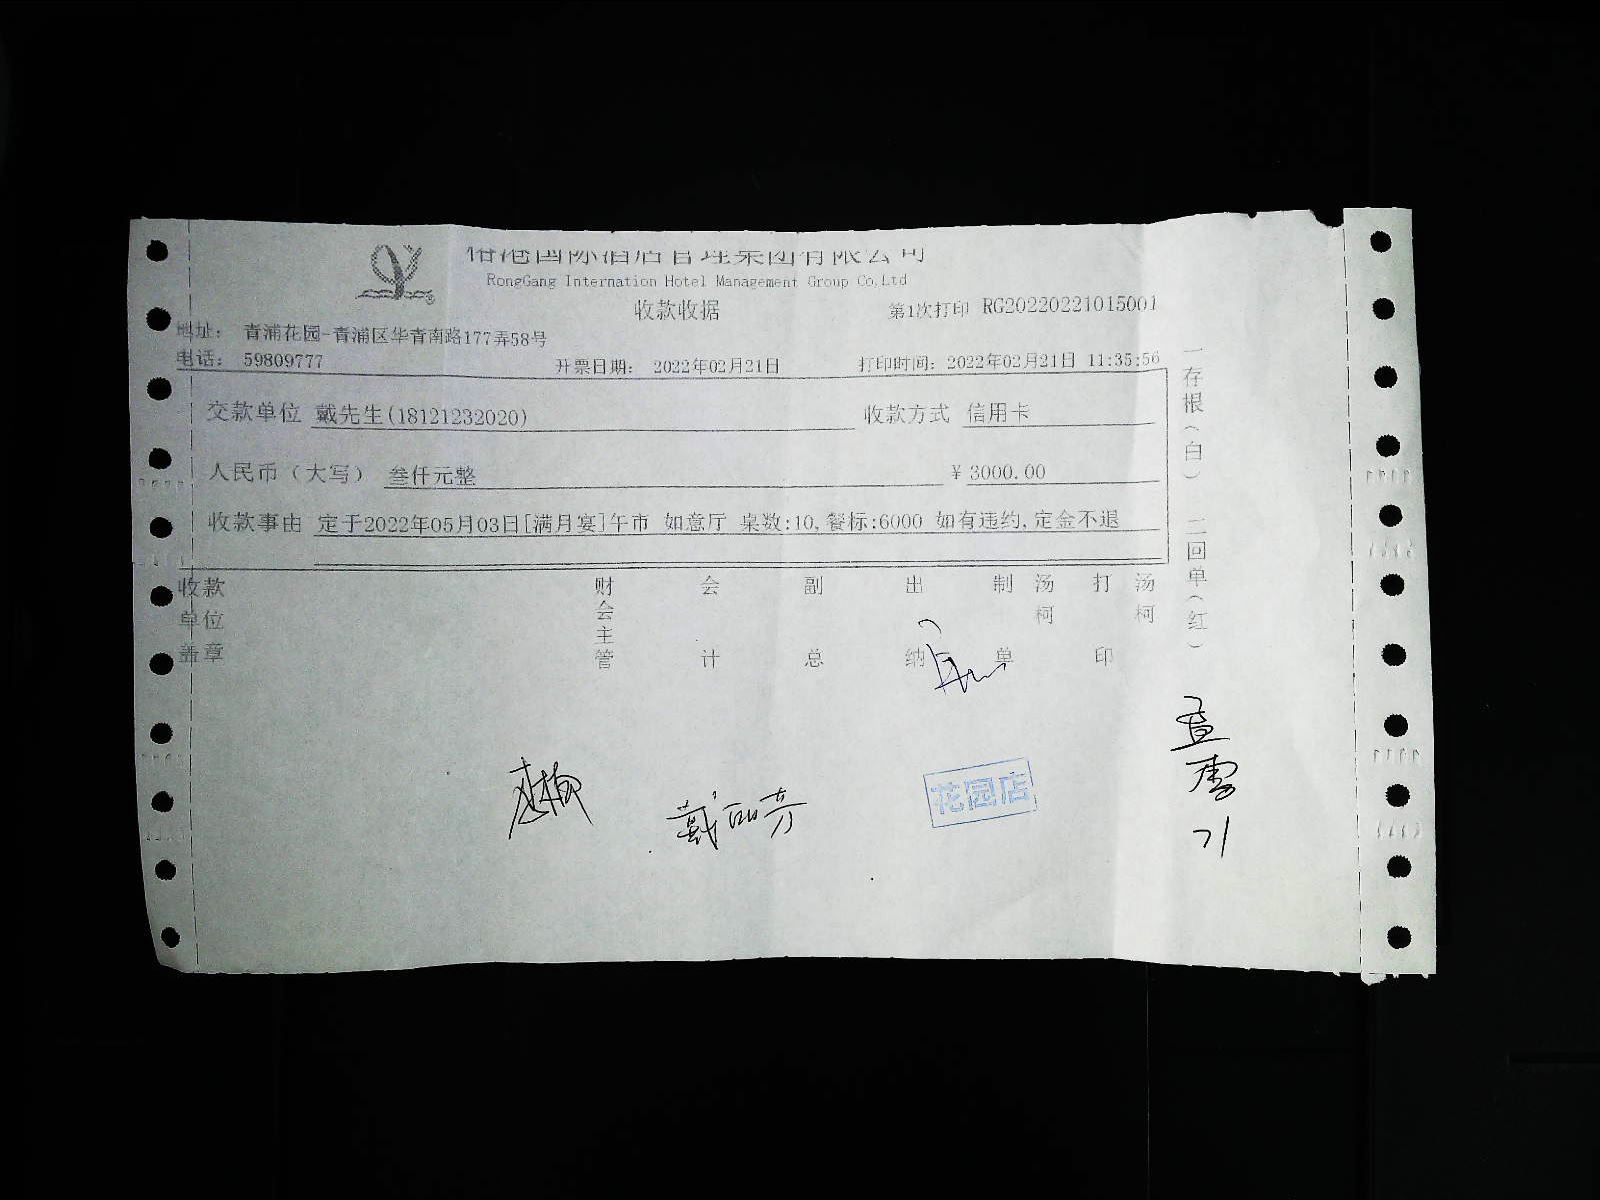 国际酒店管理集团有限公司
RongGang Internation Hotel Management Group Co.Ltd
收款收据
第1次打印 RG20220221015001
地址： 青浦花园-青浦区华青南路177弄58号
电话： 59809777
开票日期： 2022年02月21日
打印时间：2022年02月21日 11:35:56
交款单位 戴先生(18121232020)
收款方式 信用卡
人民币（大写） 叁仟元整
￥3000.00
收款事由 定于2022年05月03日[满月宴]午市 如意厅 桌数:10,餐标:6000 如有违约,定金不退
收款单位盖章
财会主管
会计
副总
出纳
制单
汤柯
打印
汤柯
一存根（白） 二回单（红）
戴丽芳
花园店